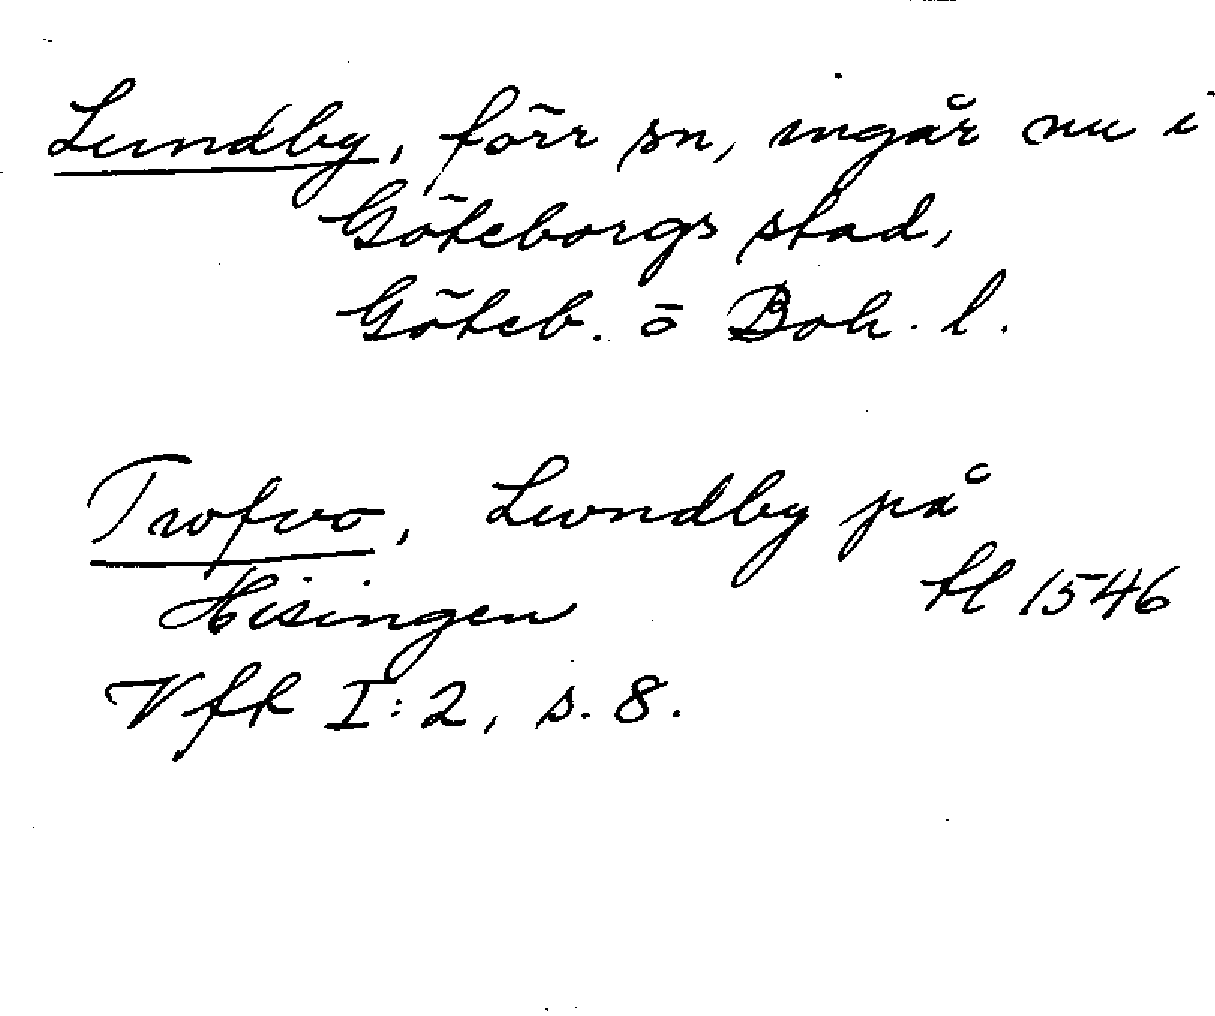 Lundby, förr sn, ingår nu i
Göteborgs stad,
Göteb. o Boh. l.
Trofvo, Lundby på
Hisingen tl 1546
Vfk I:2, s. 8.